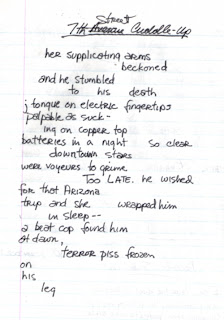 Street
7th Avenue Cuddle-Up
her supplicating arms
beckoned
and he stumbled
to his death
tongue on electric fingertips
palpable as suck-
ing on copper top
batteries in a night so clear
downtown stars
were voyeurs to grime
Too LATE. he wished
for that Arizona
trip and she wrapped him
in sleep--
a beat cop found him
at dawn,
terror piss frozen
on
his
leg